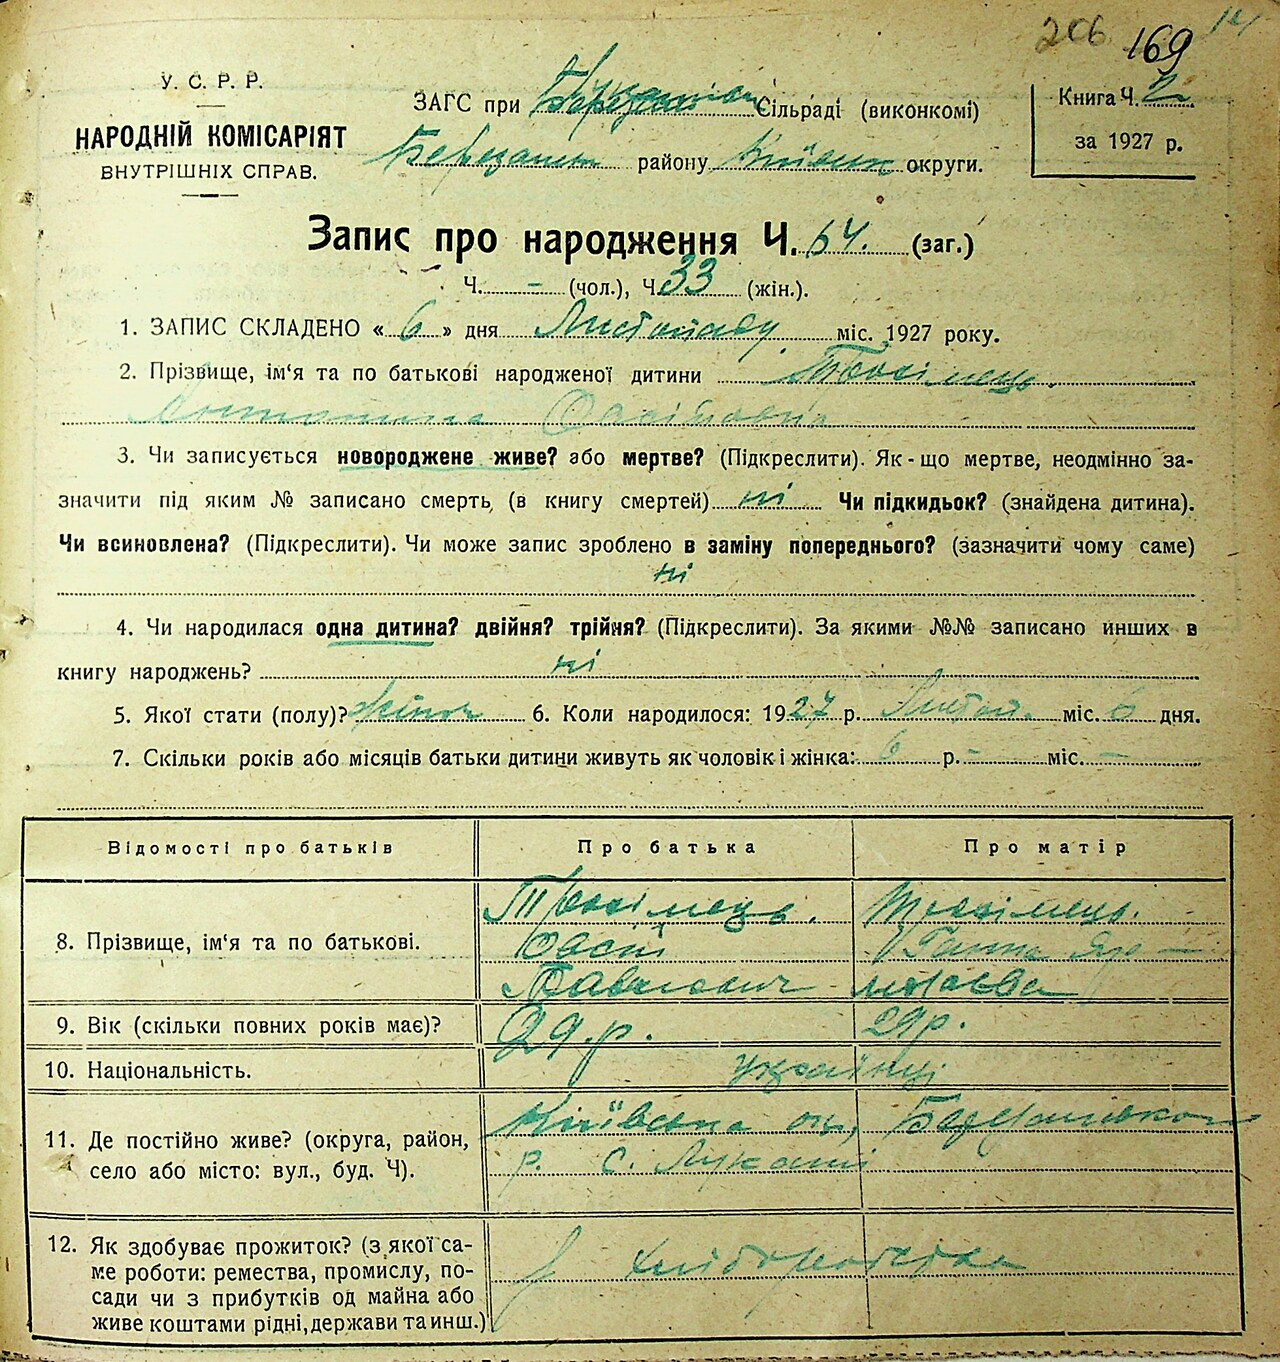 206 169 14
У. С. Р. Р.
НАРОДНІЙ КОМІСАРІЯТ
ВНУТРІШНІХ СПРАВ.
ЗАГС при Сільраді (виконкомі)
Березанськ району Київськ округи.
Книга Ч. 2
за 1927 р.
Запис про народження Ч. 64. (заг.)
Ч. - (чол.), Ч 33 (жін.).
1. ЗАПИС СКЛАДЕНО « 6 » дня Листопаду міс. 1927 року.
2. Прізвище, ім‘я та по батькові народженої дитини
Антонина
3. Чи записується новороджене живе? або мертве? (Підкреслити). Як-що мертве, неодмінно за-
значити під яким № записано смерть, (в книгу смертей) ні Чи підкидьок? (знайдена дитина).
Чи всиновлена? (Підкреслити). Чи може запис зроблено в заміну попереднього? (зазначити чому саме)
ні
4. Чи народилася одна дитина? двійня? трійня? (Підкреслити). За якими №№ записано инших в
книгу народжень? ні
5. Якої стати (полу)? жіноч 6. Коли народилося: 1927 р. Листоп. міс. 6 дня.
7. Скільки років або місяців батьки дитини живуть як чоловік і жінка: 6 р. - міс. -
Відомості про батьків Про батька Про матір
8. Прізвище, ім‘я та по батькові.
Ганна
Павлович
9. Вік (скільки повних років має)? 29 р. 29 р.
10. Національність. українці
11. Де постійно живе? (округа, район, село або місто: вул., буд. Ч). Київська ок, Березанського
р. с. Лукаші
12. Як здобуває прожиток? (з якої са-
ме роботи: ремества, промислу, по-
сади чи з прибутків од майна або
живе коштами рідні, держави та инш.)
хліборобства